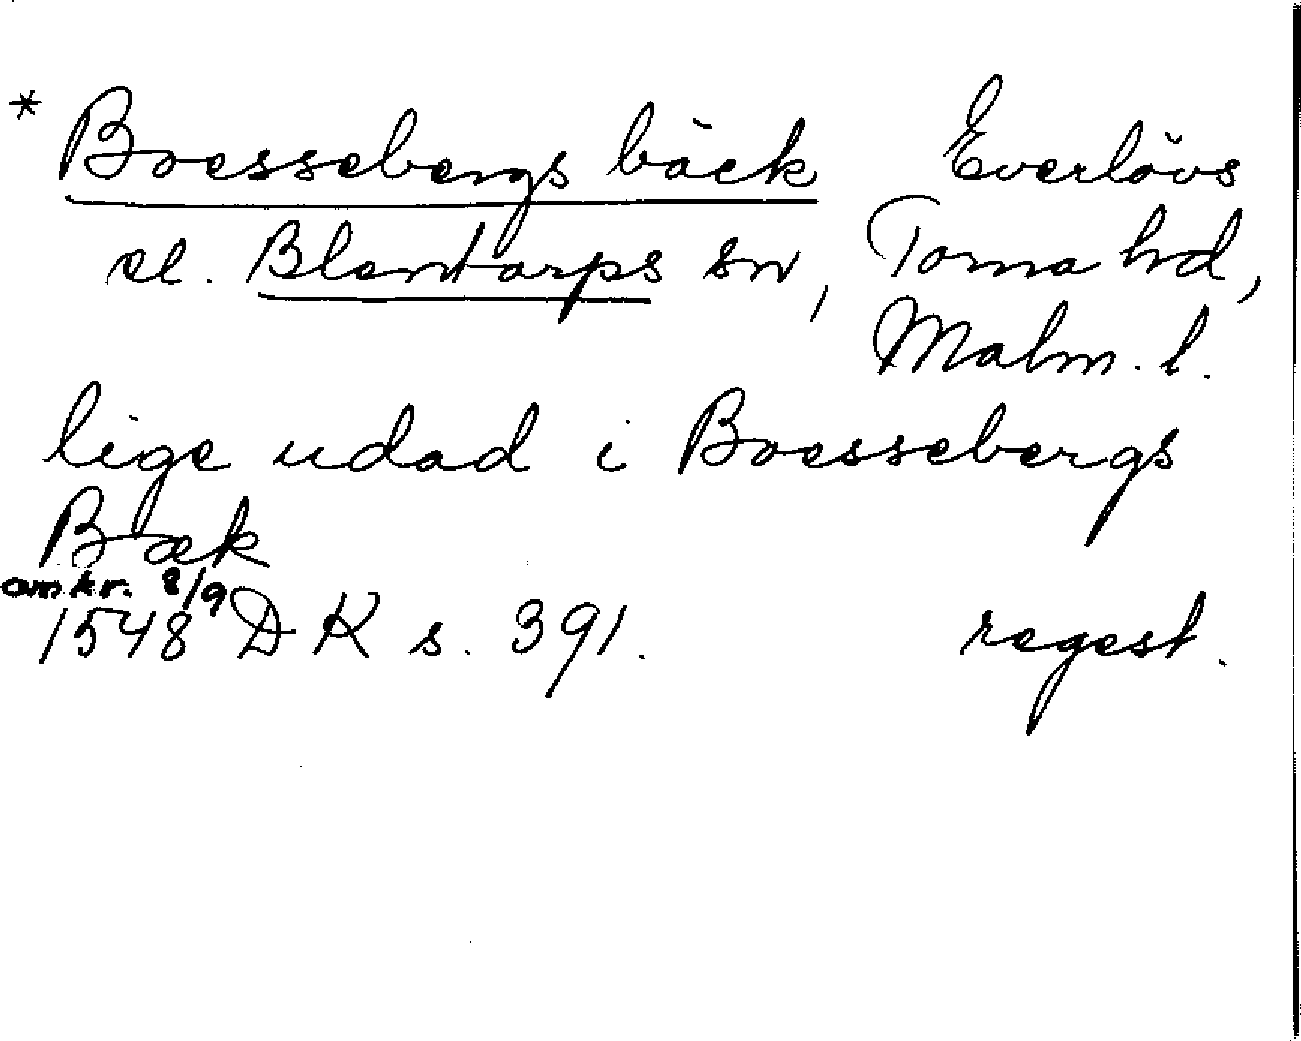 * Boessebergs bäck Everlövs
el. Blentarps sn, Torna hd,
Malm. l.
lige udad i Boessebergs
Bæk
omkr. 8/9
1548 DK s. 391. regest.